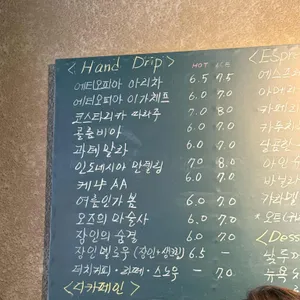 < Hand Drip > HOT ICE
에티오피아 아리차 6.5 7.5
에티오피아 이가체프 6.0 7.0
코스타리카 따라주 7.0 8.0
콜롬비아 6.0 7.0
과테말라 6.0 7.0
인도네시아 만델링 7.0 8.0
케냐 AA 6.0 7.0
여름인가 봄 6.0 7.0
오즈의 마술사 6.0 7.0
장인의 숨결 6.0 7.0
장인 멜로우 6.5 -
더치커피 · 라떼 · 스노우 - 7.0
<디카페인>
<ESp
에스
아메리
카페
카푸
바닐라
카라멜
<Dess
뉴욕